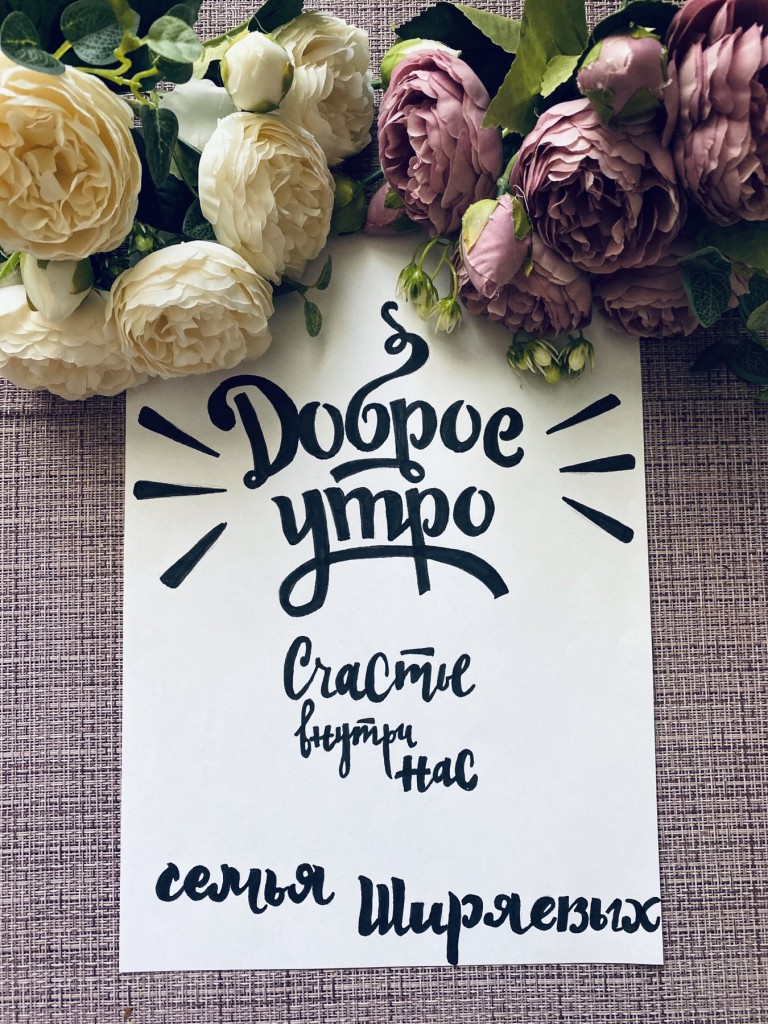 Доброе
утро
Счастье
внутри
нас
семья Ширяевых